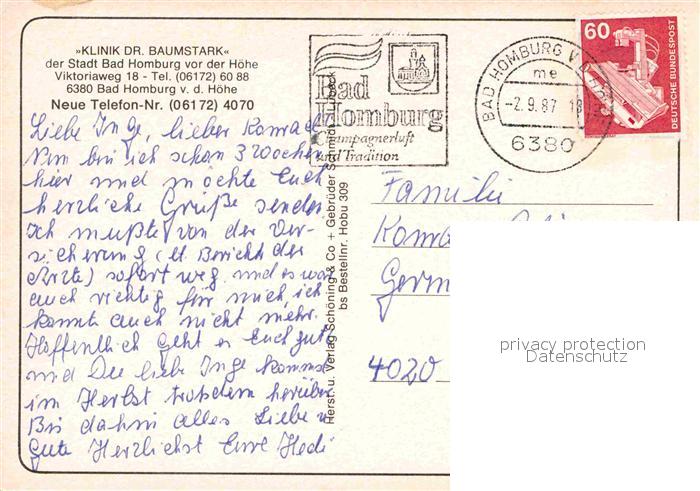 »KLINIK DR. BAUMSTARK«
der Stadt Bad Homburg vor der Höhe
Viktoriaweg 18 - Tel. (06172) 60 88
6380 Bad Homburg v. d. Höhe
Neue Telefon-Nr. (06172) 4070
Liebe Inge, lieber Konrad
Nun bin ich schon 3 Wochen
hier und möchte Euch
herzliche Grüße senden
Ich mußte von der Ver-
sicherung (lt Bericht der
Ärzte) sofort weg und es war
auch richtig für mich, ich
konnte auch nicht mehr.
Hoffentlich geht es Euch gut
und Du liebe Inge kommst
im Herbst trotzdem herüber
Bis dahin alles Liebe u
Gute Herzlichst Eure Hedi
Herst. u. Verlag Schöning & Co + Gebrüder Schmidt, Lübeck
bs Bestellnr. Hobu 309
Bad
Homburg
Champagnerluft
und Tradition
BAD HOMBURG V
me
-2.9.87 18
6380
60
DEUTSCHE BUNDESPOST
Familie
Konra
Germ
4020
privacy protection
Datenschutz